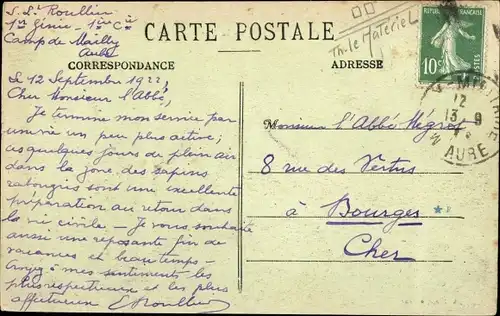 S. Lt Roullier
1er Génie - 1ère Cie
Camp de Mailly
Aube
CARTE POSTALE
Th. le Matériel
RÉPUBLIQUE FRANÇAISE
10c POSTES
CORRESPONDANCE
ADRESSE
Le 12 Septembre 1922,
Cher Monsieur l'Abbé,
Je termine mon service par
une vie un peu plus active ;
ces quelques jours de plein air
dans la zone, des sapins
rabougris sont une excellente
préparation au retour dans
la vie civile - Je vous souhaite
aussi une reposante fin de
vacances et beau temps -
Croyez à mes sentiments les
plus respectueux et les plus
affectueux ERoullier
12
13 9
AUBE
Monsieur l'Abbé Mégrot
8 rue des Vertus
à Bourges
Cher